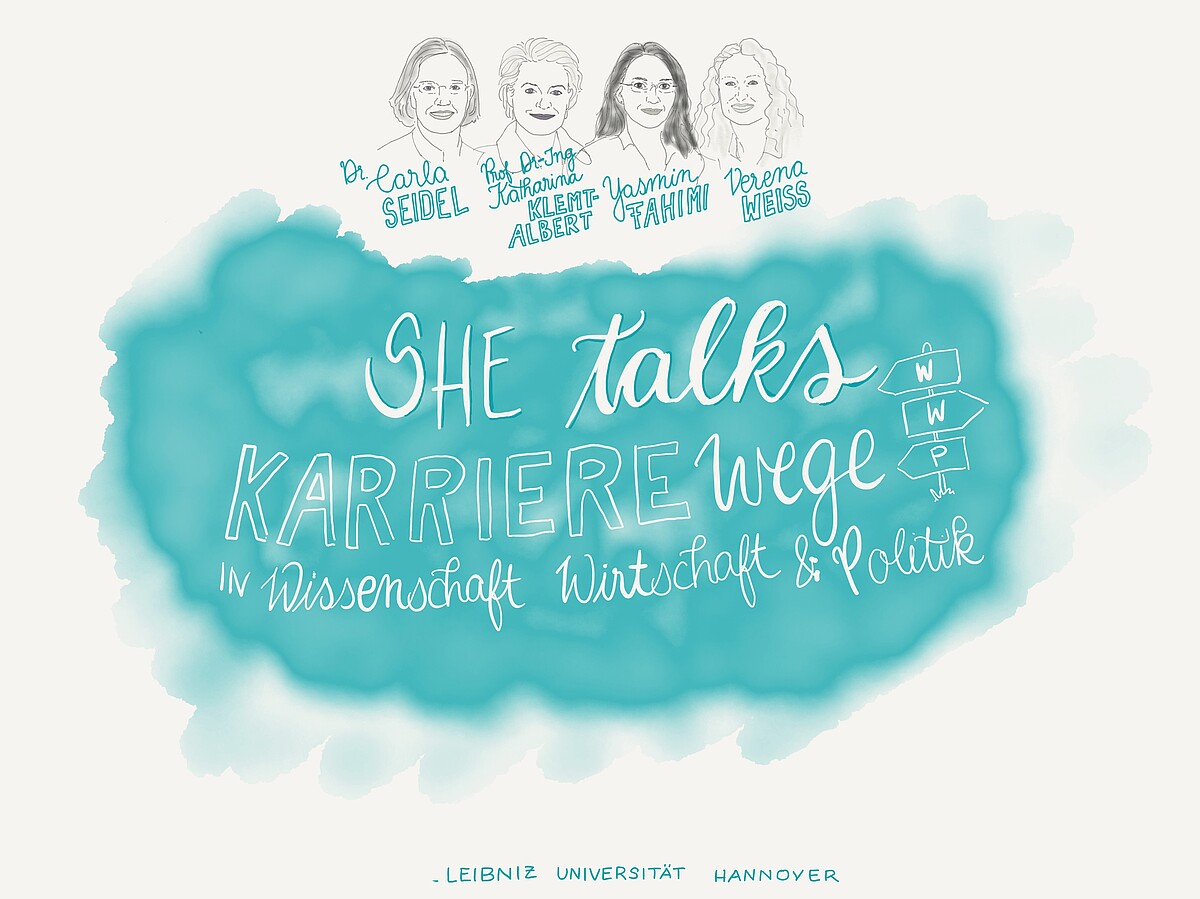 Dr. Carla
SEIDEL
Prof Dr-Ing
Katharina
KLEMT-
ALBERT
Yasmin
FAHIMI
Verena
WEISS
SHE talks
KARRIERE Wege
W
W
P
IN Wissenschaft Wirtschaft & Politik
- LEIBNIZ UNIVERSITÄT HANNOVER